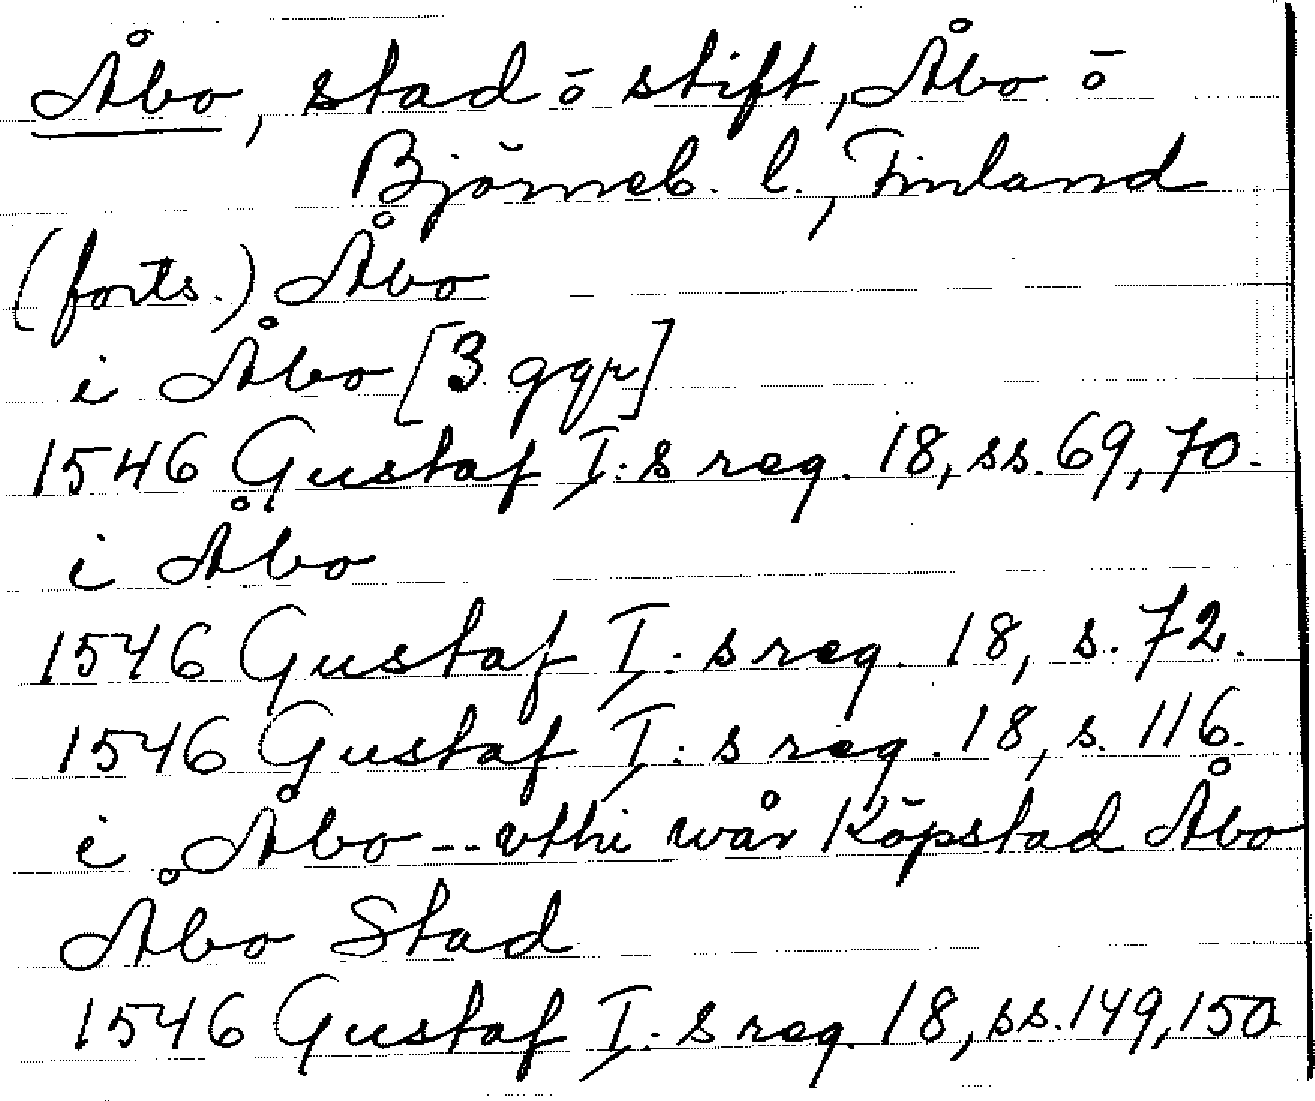 Åbo, stad ō stift, Åbo ō
Björneb. l., Finland
(forts.) Åbo
i Åbo [3 ggr]
1546 Gustaf I:s reg. 18, ss. 69, 70.
i Åbo
1546 Gustaf I:s reg. 18, s. 72.
1546 Gustaf I:s reg. 18, s. 116.
i Åbo -- vthi wår Köpstad Åbo
Åbo Stad
1546 Gustaf I:s reg. 18, ss. 149, 150